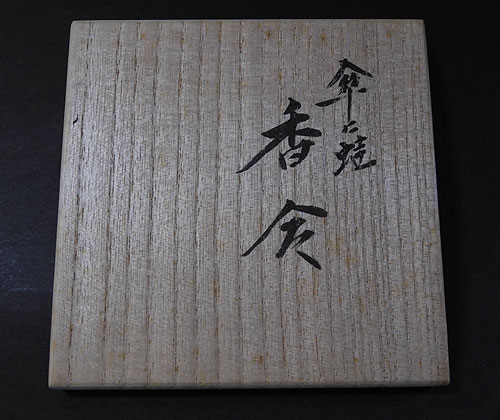 傘に蛙
香合